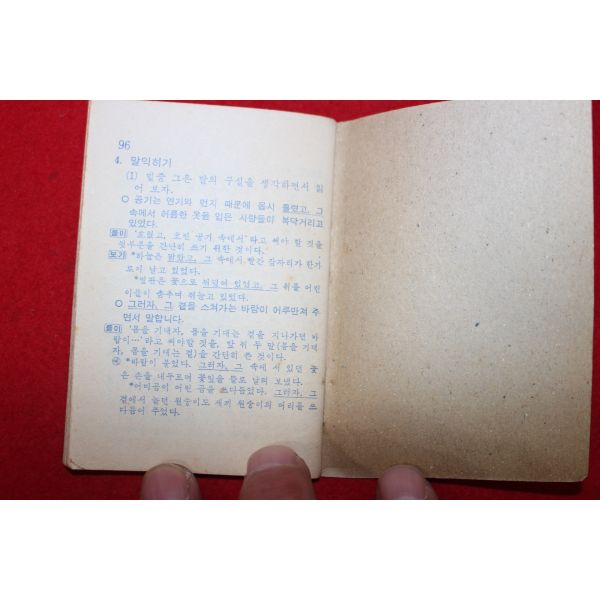 96
4. 말익히기
(1) 밑줄 그은 말의 구실을 생각하면서 읽
어 보자.
○ 공기는 연기와 먼지 때문에 몹시 흐렸고, 그
속에서 허름한 옷을 입은 사람들이 북닥거리고
있었다.
풀이 '흐렸고, 흐린 공기 속에서'라고 써야 할 것을
뒷부분을 간단히 쓰기 위한 것이다.
보기 *하늘은 맑았고, 그 속에서 빨간 잠자리가 한가
로이 날고 있었다.
*벌판은 꽃으로 뒤덮여 있었고, 그 위를 어린
이들이 춤추며 뛰놀고 있었다.
○ 그러자, 그 곁을 스쳐가는 바람이 어루만져 주
면서 말합니다.
풀이 '몸을 기대자, 몸을 기대는 곁을 지나가던 바
람이…'라고 써야할것을, 앞 뒤 두 말(몸을 기대
자, 몸을 기대는 곁)을 간단히 쓴 것이다.
*바람이 불었다. 그러자, 그 속에 서 있던 꽃
은 손을 내두르며 꽃잎을 들로 날려 보냈다.
*어미곰이 어린 곰을 쓰다듬었다. 그러자, 그
곁에서 놀던 원숭이도 새끼 원숭이의 머리를 쓰
다듬어 주었다.